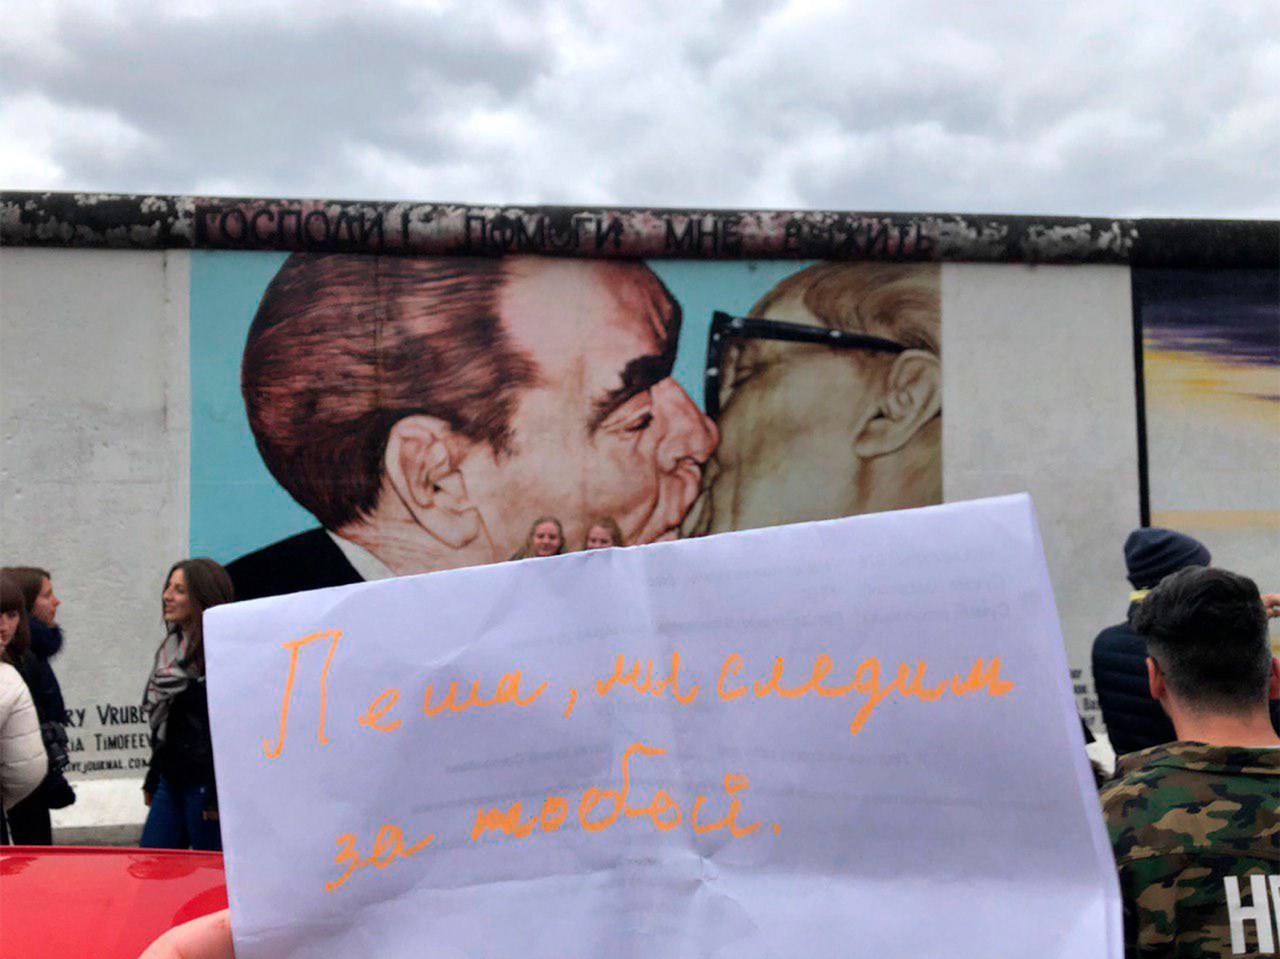 ГОСПОДИ! ПОМОГИ МНЕ ВЫЖИТЬ
RY VRUBE
RIA TIMOFEEV
IVEJOURNAL.COM
Пеша, мы следим
за тобой.